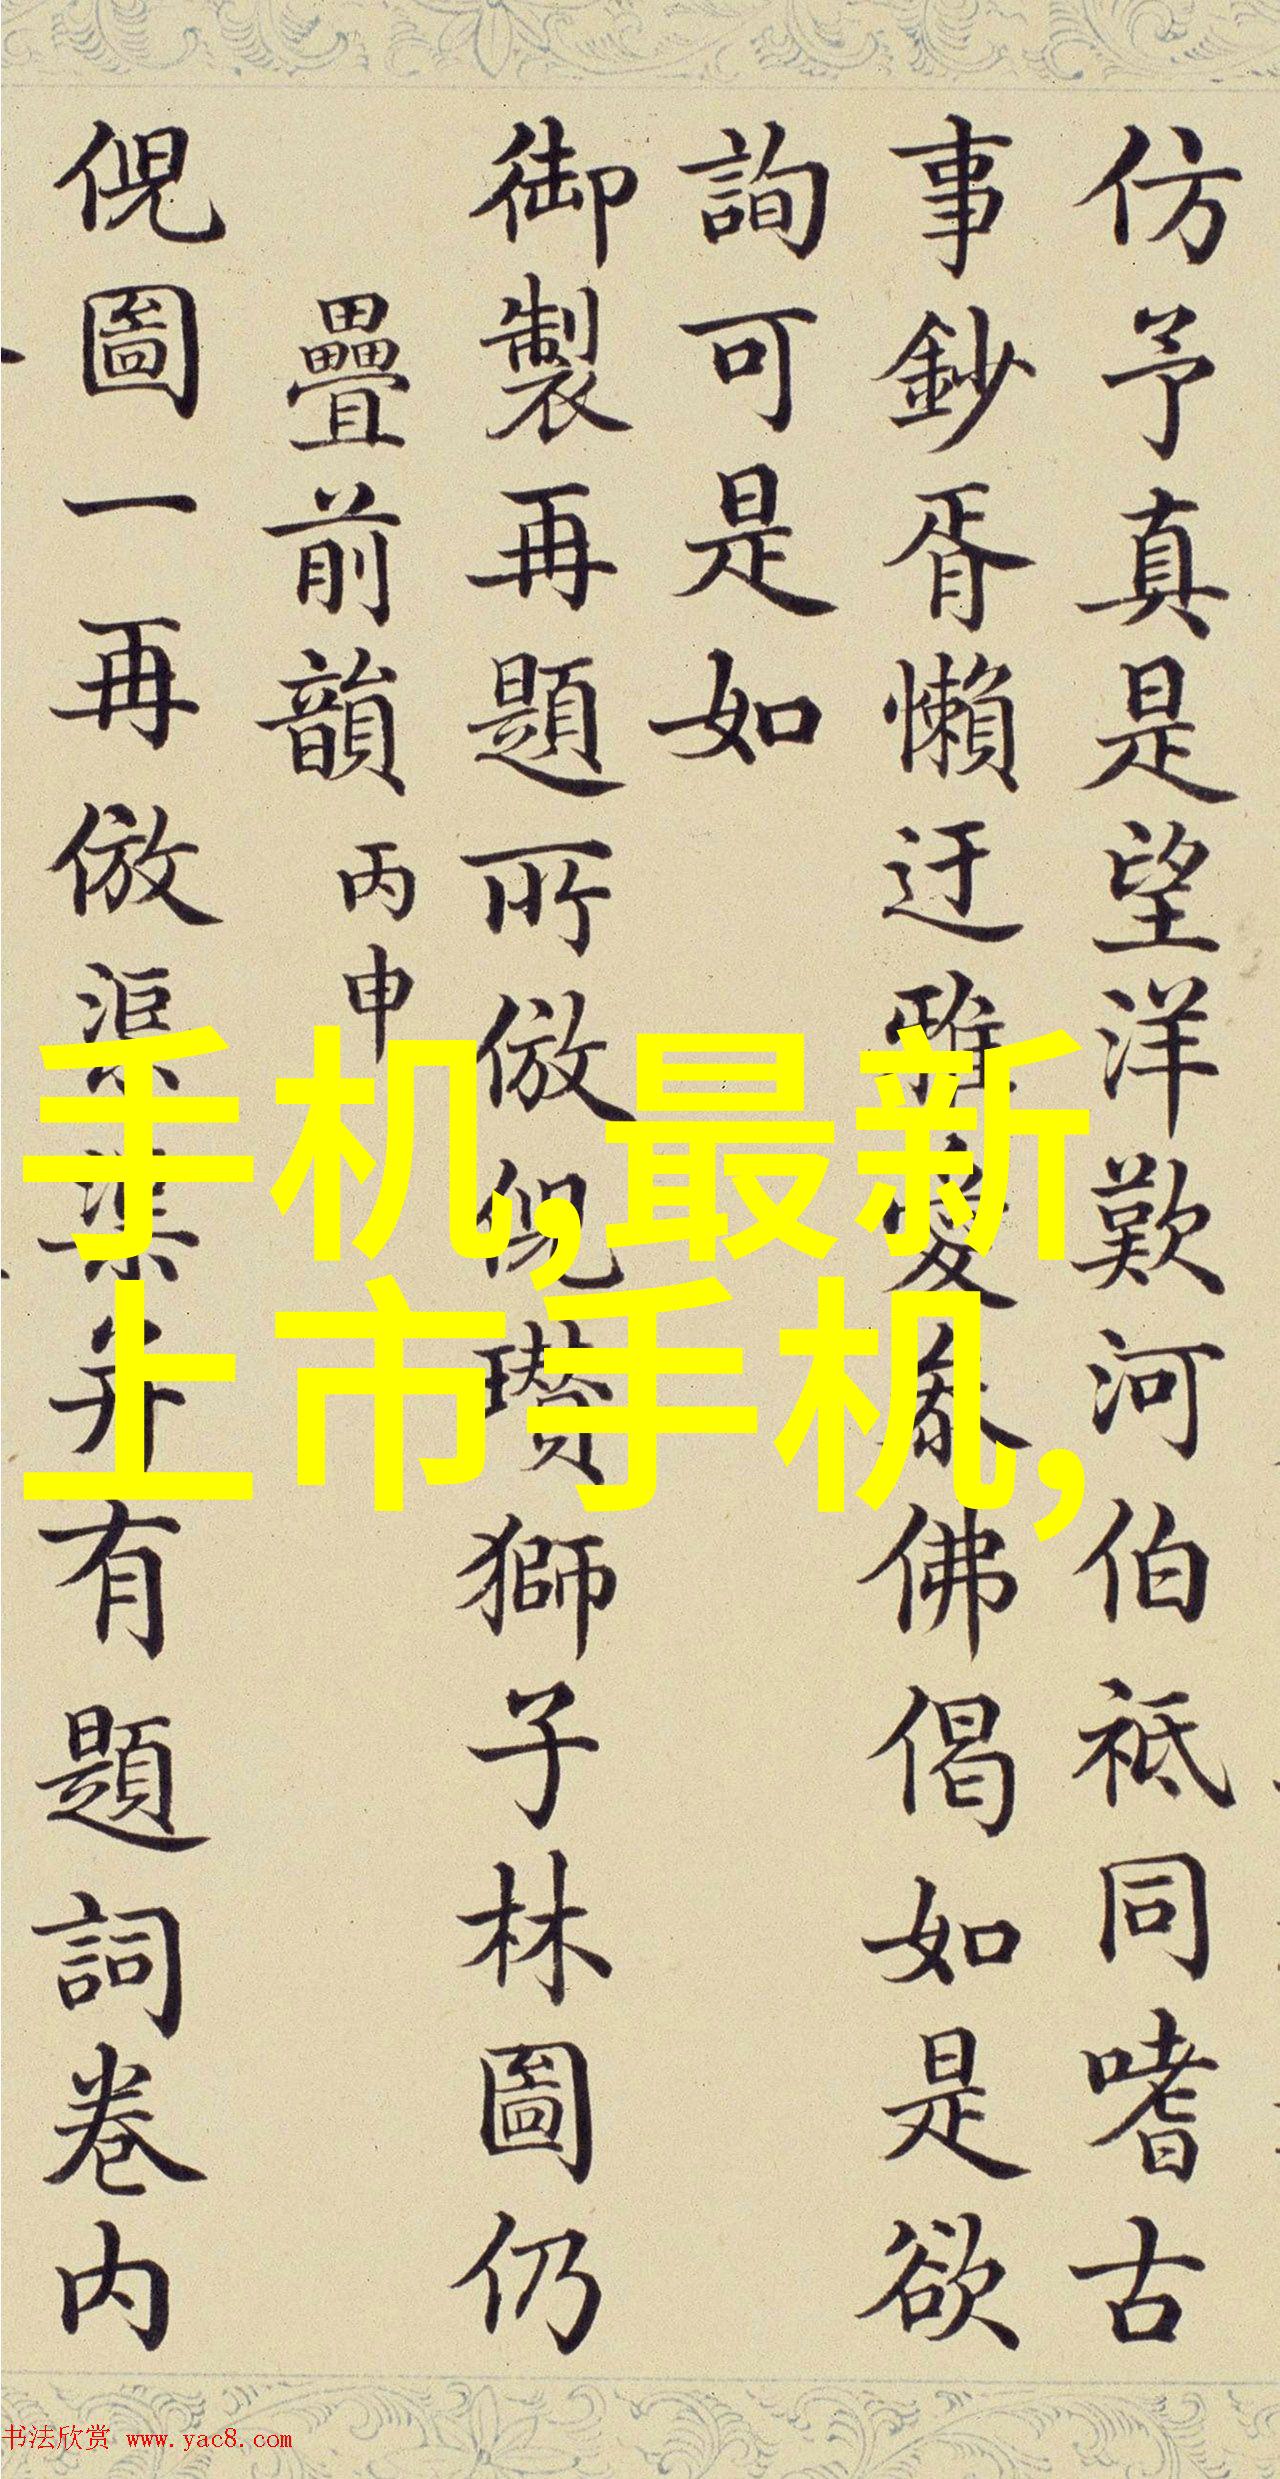 仿予真是望洋歎河伯祗同嗜古
事鈔胥懶迂雅愛叅佛偈如是欲
詢可是如
御製再題所倣倪瓚獅子林圖仍
疊前韻 丙申
倪圖一再倣渠并有題詞卷内
手机,最新
上市手机,
书法欣赏 www.yac8.com